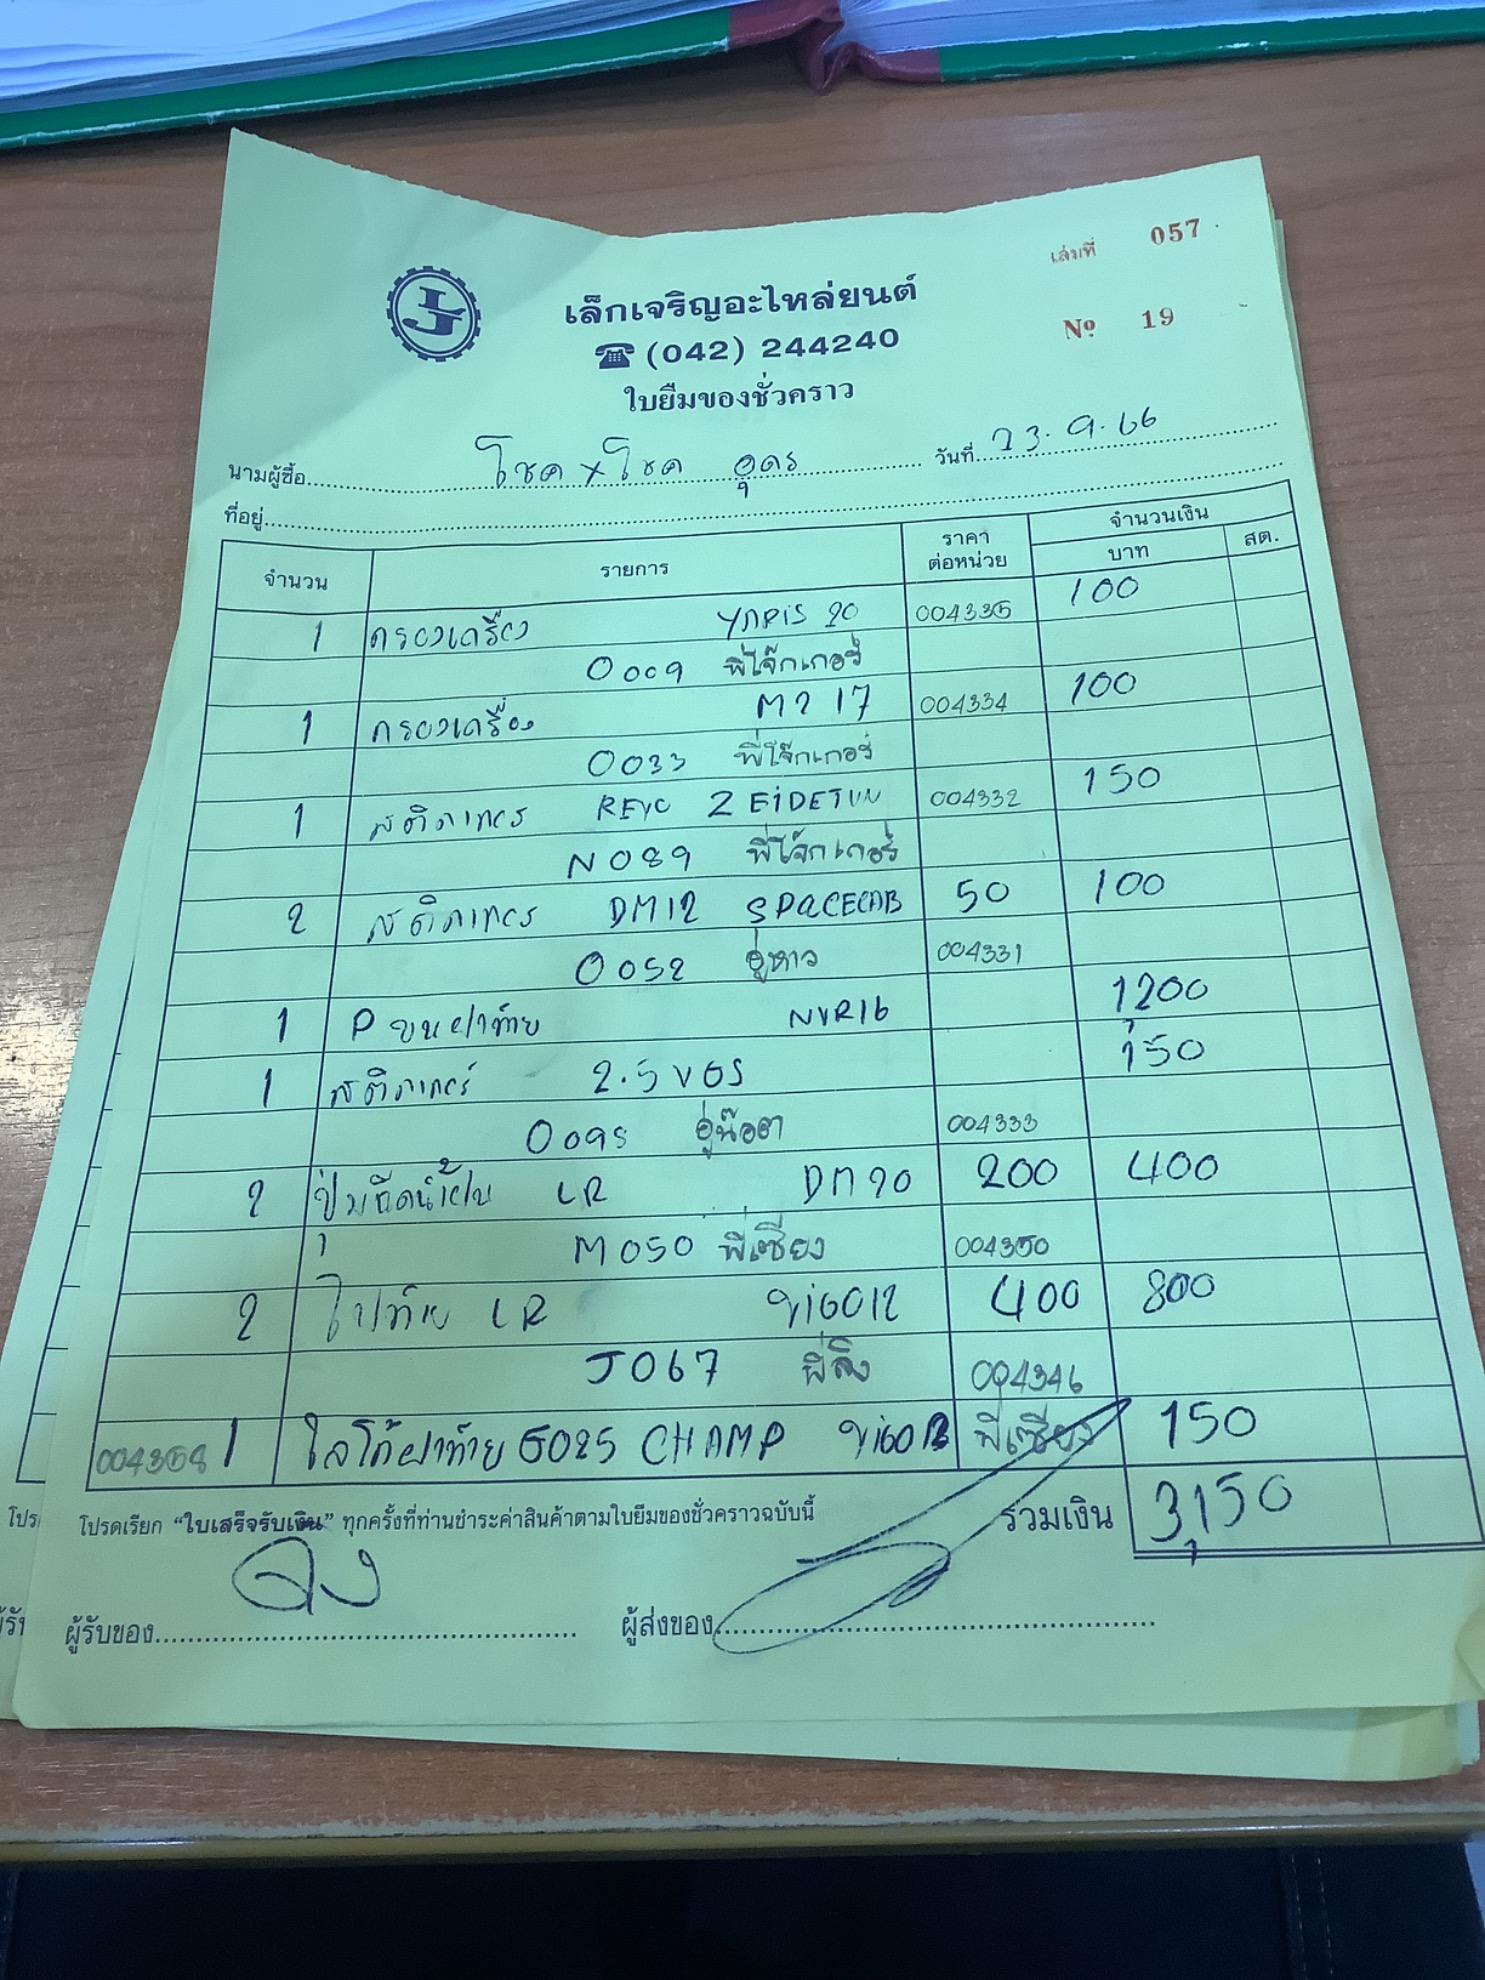 เล่มที่ 057
เล็กเจริญอะไหล่ยนต์
(042) 244240
Nº 19
ใบยืมของชั่วคราว
นามผู้ซื้อ โชค x โชค อุดร วันที่ 23.9.66
ที่อยู่
จำนวน รายการ ราคาต่อหน่วย จำนวนเงิน บาท สต.
1 กรองเครื่อง YARIS 20 004335 100
0009 พี่โจ๊กเกอร์
1 กรองเครื่อง M2 17 004334 100
0033 พี่โจ๊กเกอร์
1 สติกเกอร์ REVO 004332 150
N089 พี่โจ๊กเกอร์
2 สติกเกอร์ DM12 SPACECAB 50 100
0052 อู่หาว 004331
1 P ขนฝาท้าย NVR16 1200
1 สติกเกอร์ 2.5 VGS 150
อู่น๊อต 004333
2 ปั้มฉีดน้ำฝน LR DM20 200 400
M050 พี่เซียง 004350
2 ไฟท้าย LR VIGO12 400 800
J067 พี่ลิง 004346
1 โลโก้ฝาท้าย G025 CHAMP พี่เซียง 150
โปรดเรียก “ใบเสร็จรับเงิน” ทุกครั้งที่ท่านชำระค่าสินค้าตามใบยืมของชั่วคราวฉบับนี้ รวมเงิน 3,150
ผู้รับของ ผู้ส่งของ